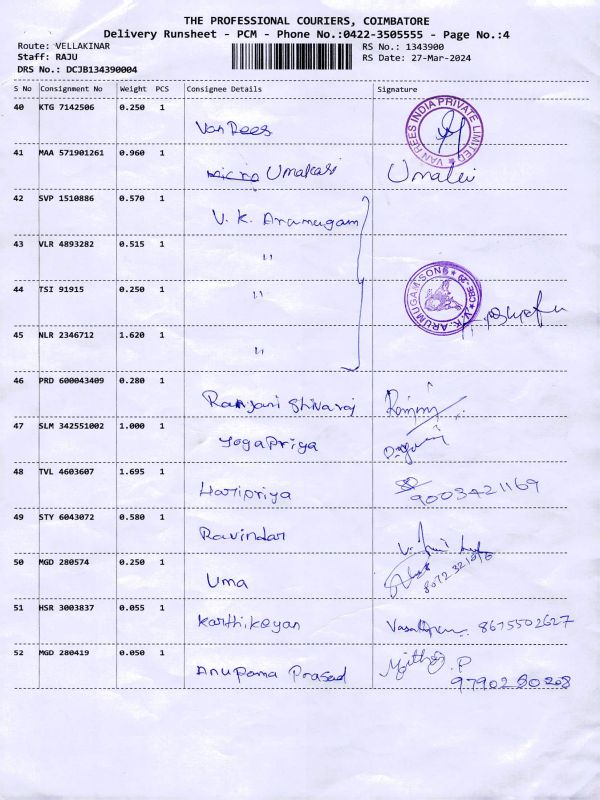 THE PROFESSIONAL COURIERS, COIMBATORE
Delivery Runsheet - PCM - Phone No.:0422-3505555 - Page No.:4
Route: VELLAKINAR RS No.: 1343900
Staff: RAJU RS Date: 27-Mar-2024
DRS No.: DCJB134390004
S No Consignment No Weight PCS Consignee Details Signature
40 KTG 7142506 0.250 1
Van Rees
VAN REES INDIA PRIVATE LIMITED
41 MAA 571901261 0.960 1
micro Umakasi
42 SVP 1510886 0.570 1
V. K. Arumugam
43 VLR 4893282 0.515 1
"
44 TSI 91915 0.250 1
"
V.K. ARUMUGAM SON
45 NLR 2346712 1.620 1
"
46 PRD 600043409 0.280 1
Ranjani Shivaraj
47 SLM 342551002 1.000 1
YogaPriya
48 TVL 4603607 1.695 1
Haripriya 9003421169
49 STY 6043072 0.580 1
Ravindar
50 MGD 280574 0.250 1
Uma
51 HSR 3003837 0.055 1
Karthikeyan 8675502627
52 MGD 280419 0.050 1
Anupama Prasad
97902 80208